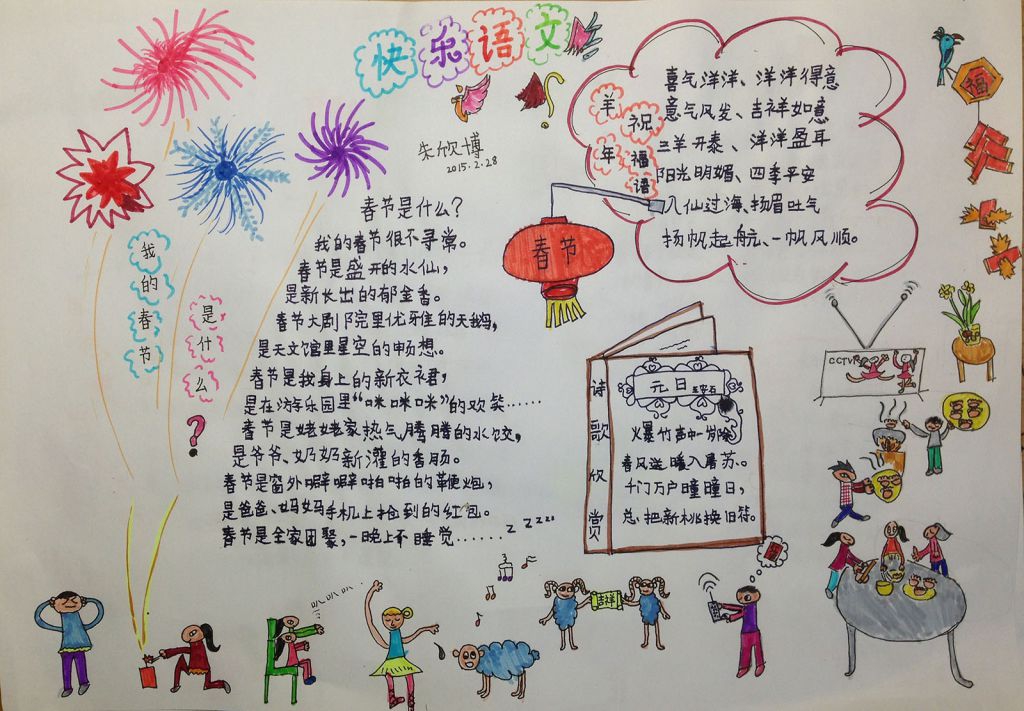 快乐语文
朱欣博
2015.2.28
羊年
祝福语
喜气洋洋、洋洋得意
意气风发、吉祥如意
三羊开泰、洋洋盈耳
阳光明媚、四季平安
八仙过海、扬眉吐气
扬帆起航、一帆风顺。
福
春节
我的春节
是什么?
春节是什么?
我的春节很不寻常。
春节是盛开的水仙,
是新长出的郁金香。
春节大剧院里优雅的天鹅,
是天文馆里星空的畅想。
春节是我身上的新衣衣裙,
是在游乐园里“咪咪咪”的欢笑……
春节是姥姥家热气腾腾的水饺,
是爷爷、奶奶新灌的香肠。
春节是窗外噼噼啪啪的鞭炮,
是爸爸、妈妈手机上抢到的红包。
春节是全家团聚,一晚上不睡觉……
z zzzz
诗歌欣赏
元日
王安石
火暴竹声中一岁除
春风送暖入屠苏。
千门万户瞳瞳日,
总把新桃换旧符。
CCTV
叭叭叭
吉祥